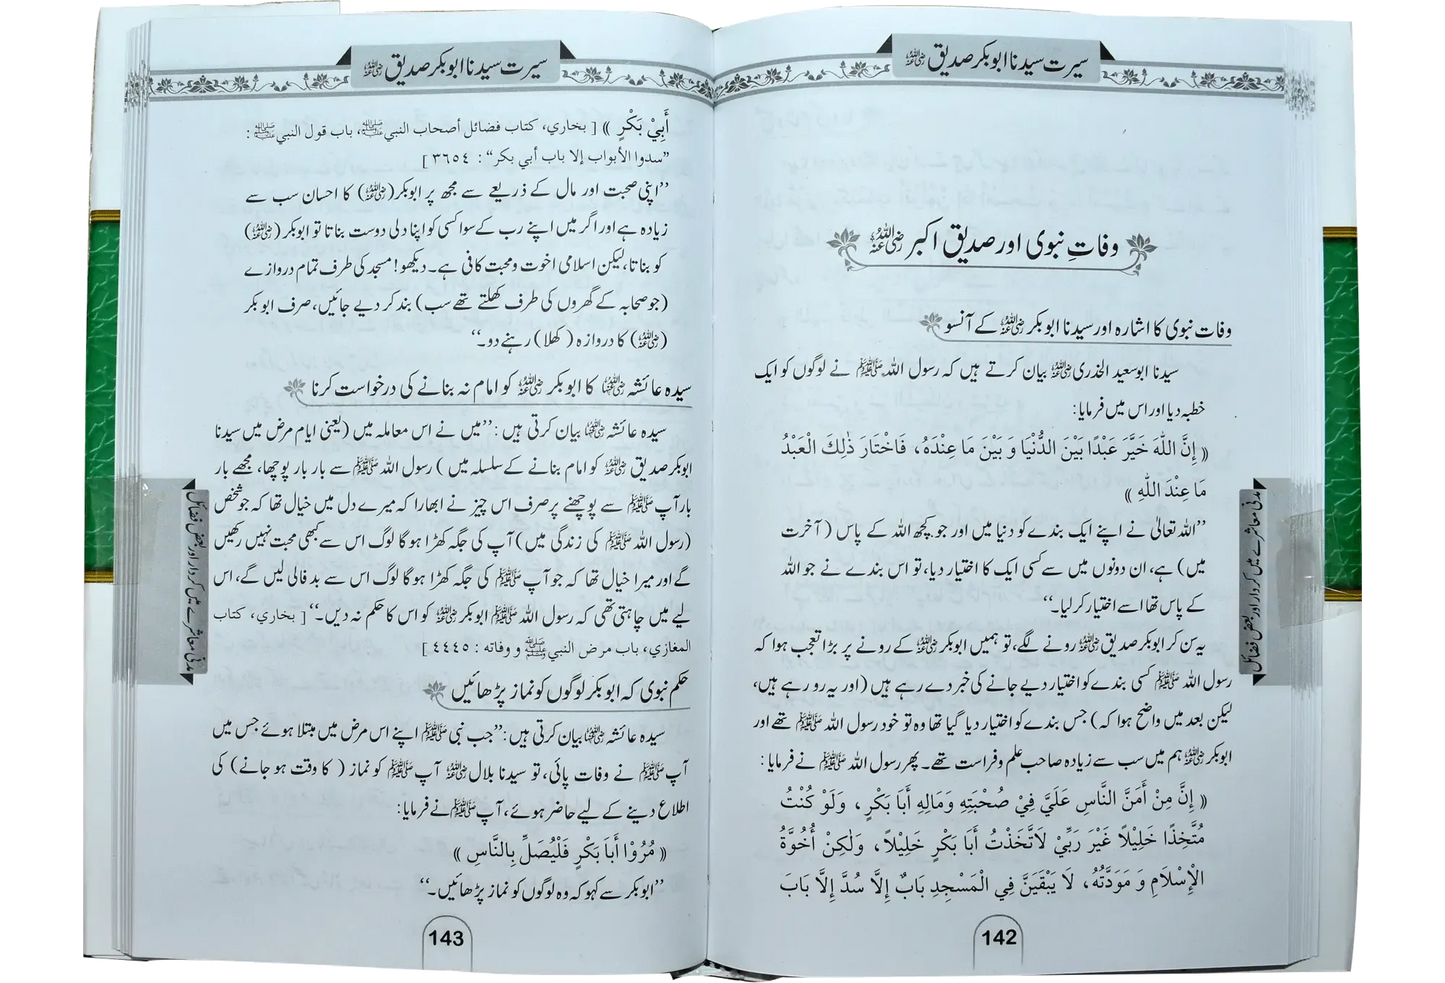 سیرت سیدنا ابوبکر صدیق رضی اللہ عنہ
وفاتِ نبوی اور صدیق اکبر رضی اللہ عنہ
وفات نبوی کا اشارہ اور سیدنا ابوبکر رضی اللہ عنہ کے آنسو
سیدنا ابوسعید الخدری رضی اللہ عنہ بیان کرتے ہیں کہ رسول اللہ ﷺ نے لوگوں کو ایک
خطبہ دیا اور اس میں فرمایا:
« إِنَّ اللّٰهَ خَيَّرَ عَبْدًا بَيْنَ الدُّنْيَا وَ بَيْنَ مَا عِنْدَهُ، فَاخْتَارَ ذٰلِكَ الْعَبْدُ
مَا عِنْدَ اللّٰهِ »
’’اللہ تعالیٰ نے اپنے ایک بندے کو دنیا میں اور جو کچھ اللہ کے پاس (آخرت
میں) ہے، ان دونوں میں سے کسی ایک کا اختیار دیا، تو اس بندے نے جو اللہ
کے پاس تھا اسے اختیار کر لیا۔‘‘
یہ سن کر ابوبکر صدیق رضی اللہ عنہ رونے لگے، تو ہمیں ابوبکر رضی اللہ عنہ کے رونے پر بڑا تعجب ہوا کہ
رسول اللہ ﷺ کسی بندے کو اختیار دیے جانے کی خبر دے رہے ہیں (اور یہ رو رہے ہیں،
لیکن بعد میں واضح ہوا کہ) جس بندے کو اختیار دیا گیا تھا وہ تو خود رسول اللہ ﷺ تھے اور
ابوبکر رضی اللہ عنہ ہم میں سب سے زیادہ صاحب علم و فراست تھے۔ پھر رسول اللہ ﷺ نے فرمایا:
« إِنَّ مِنْ أَمَنَّ النَّاسِ عَلَيَّ فِيْ صُحْبَتِهِ وَمَالِهِ أَبَا بَكْرٍ، وَلَوْ كُنْتُ
مُتَّخِذًا خَلِيْلًا غَيْرَ رَبِّيْ لَاتَّخَذْتُ أَبَا بَكْرٍ خَلِيْلًا، وَلٰكِنْ أُخُوَّةُ
الْإِسْلَامِ وَ مَوَدَّتُهُ، لَا يَبْقَيَنَّ فِي الْمَسْجِدِ بَابٌ إِلَّا سُدَّ إِلَّا بَابَ
مدنی معاشرے میں کردار اور بعض فضائل
142
سیرت سیدنا ابوبکر صدیق رضی اللہ عنہ
أَبِيْ بَكْرٍ » [ بخاري، كتاب فضائل أصحاب النبي ﷺ، باب قول النبي ﷺ :
”سدوا الأبواب إلا باب أبي بكر“ : ٣٦٥٤ ]
’’اپنی صحبت اور مال کے ذریعے سے مجھ پر ابوبکر (رضی اللہ عنہ) کا احسان سب سے
زیادہ ہے اور اگر میں اپنے رب کے سوا کسی کو اپنا دلی دوست بناتا تو ابوبکر (رضی اللہ عنہ)
کو بناتا، لیکن اسلامی اخوت و محبت کافی ہے۔ دیکھو! مسجد کی طرف تمام دروازے
(جو صحابہ کے گھروں کی طرف کھلتے تھے سب) بند کر دیے جائیں، صرف ابوبکر
(رضی اللہ عنہ) کا دروازہ (کھلا) رہنے دو۔‘‘
سیدہ عائشہ رضی اللہ عنہا کا ابوبکر رضی اللہ عنہ کو امام نہ بنانے کی درخواست کرنا
سیدہ عائشہ رضی اللہ عنہا بیان کرتی ہیں: ’’میں نے اس معاملہ میں (یعنی ایام مرض میں سیدنا
ابوبکر صدیق رضی اللہ عنہ کو امام بنانے کے سلسلہ میں) رسول اللہ ﷺ سے بار بار پوچھا، مجھے بار
بار آپ ﷺ سے پوچھنے پر صرف اس چیز نے ابھارا کہ میرے دل میں خیال تھا کہ جو شخص
(رسول اللہ ﷺ کی زندگی میں) آپ کی جگہ کھڑا ہوگا لوگ اس سے کبھی محبت نہیں رکھیں
گے اور میرا خیال تھا کہ جو آپ ﷺ کی جگہ کھڑا ہوگا لوگ اس سے بد فالی لیں گے، اس
لیے میں چاہتی تھی کہ رسول اللہ ﷺ ابوبکر رضی اللہ عنہ کو اس کا حکم نہ دیں۔‘‘ [ بخاري، كتاب
المغازي، باب مرض النبي ﷺ و وفاته : ٤٤٤٥ ]
حکم نبوی کہ ابوبکر لوگوں کو نماز پڑھائیں
سیدہ عائشہ رضی اللہ عنہا بیان کرتی ہیں: ’’جب نبی ﷺ اپنے اس مرض میں مبتلا ہوئے جس میں
آپ ﷺ نے وفات پائی، تو سیدنا بلال رضی اللہ عنہ آپ ﷺ کو نماز (کا وقت ہو جانے) کی
اطلاع دینے کے لیے حاضر ہوئے، آپ ﷺ نے فرمایا:
« مُرُوْا أَبَا بَكْرٍ فَلْيُصَلِّ بِالنَّاسِ »
’’ابوبکر سے کہو کہ وہ لوگوں کو نماز پڑھائیں۔‘‘
مدنی معاشرے میں کردار اور بعض فضائل
143